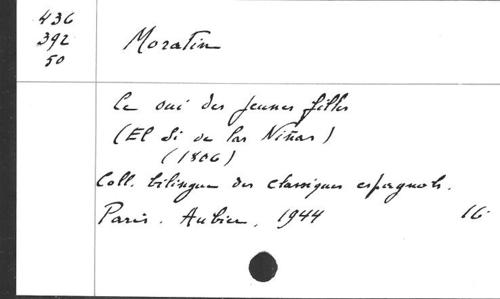 436
392
50
Moratin
Le oui des jeunes filles
(El si de las Niñas)
(1806)
Coll. bilingue des classiques espagnols.
Paris. Aubier. 1944 16